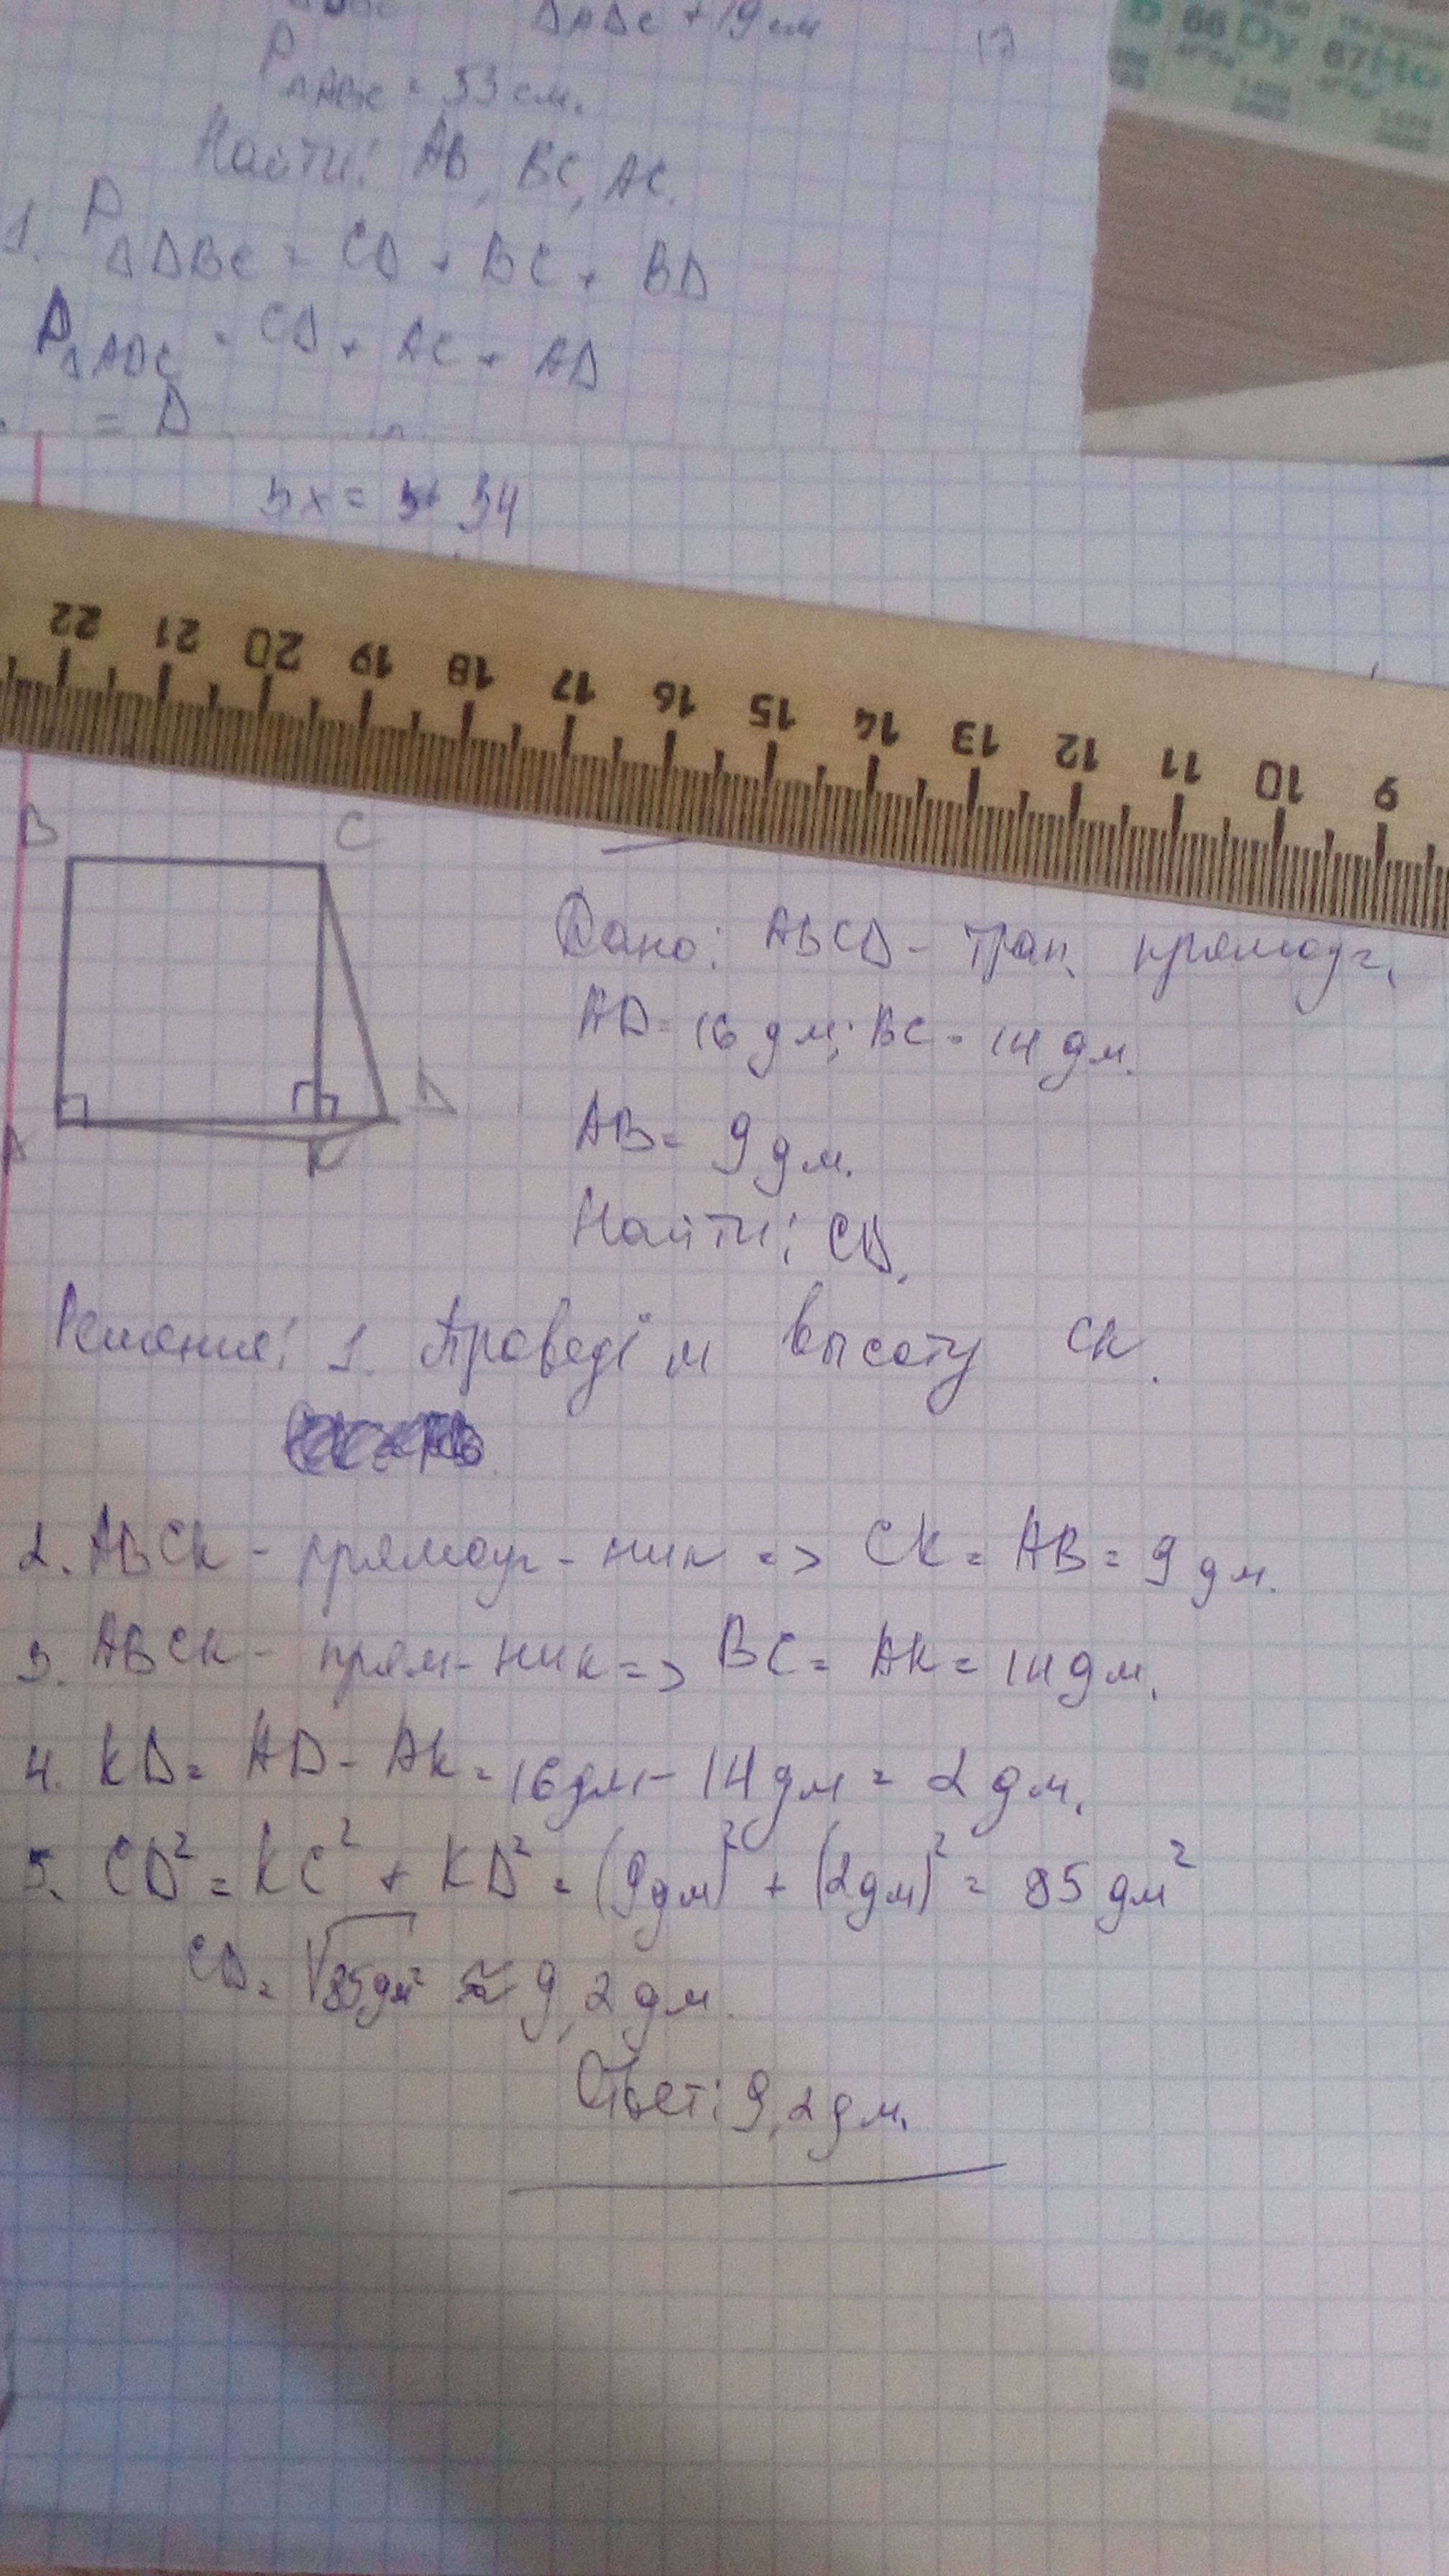 ΔADC + 19 см
17
P ΔABC = 33 см.
Найти: AB, BC, AC.
1. P ΔDBC = CD + BC + BD
P ΔADC = CD + AC + AD
= D
66 Dy 67 Ho
3x = 34
22 21 20 19 18 17 16 15 14 13 12 11 10 9
B C
A K D
Дано: ABCD - трап. прямоуг.
AD = 16 дм; BC = 14 дм.
AB = 9 дм.
Найти: CD.
Решения: 1. Проведём высоту CK.
2. ABCK - прямоуг-ник => CK = AB = 9 дм.
3. ABCK - прям-ник => BC = AK = 14 дм.
4. KD = AD - AK = 16 дм - 14 дм = 2 дм.
5. CD² = KC² + KD² = (9 дм)² + (2 дм)² = 85 дм²
CD = √85 дм² ≈ 9,2 дм.
Ответ: 9,2 дм.